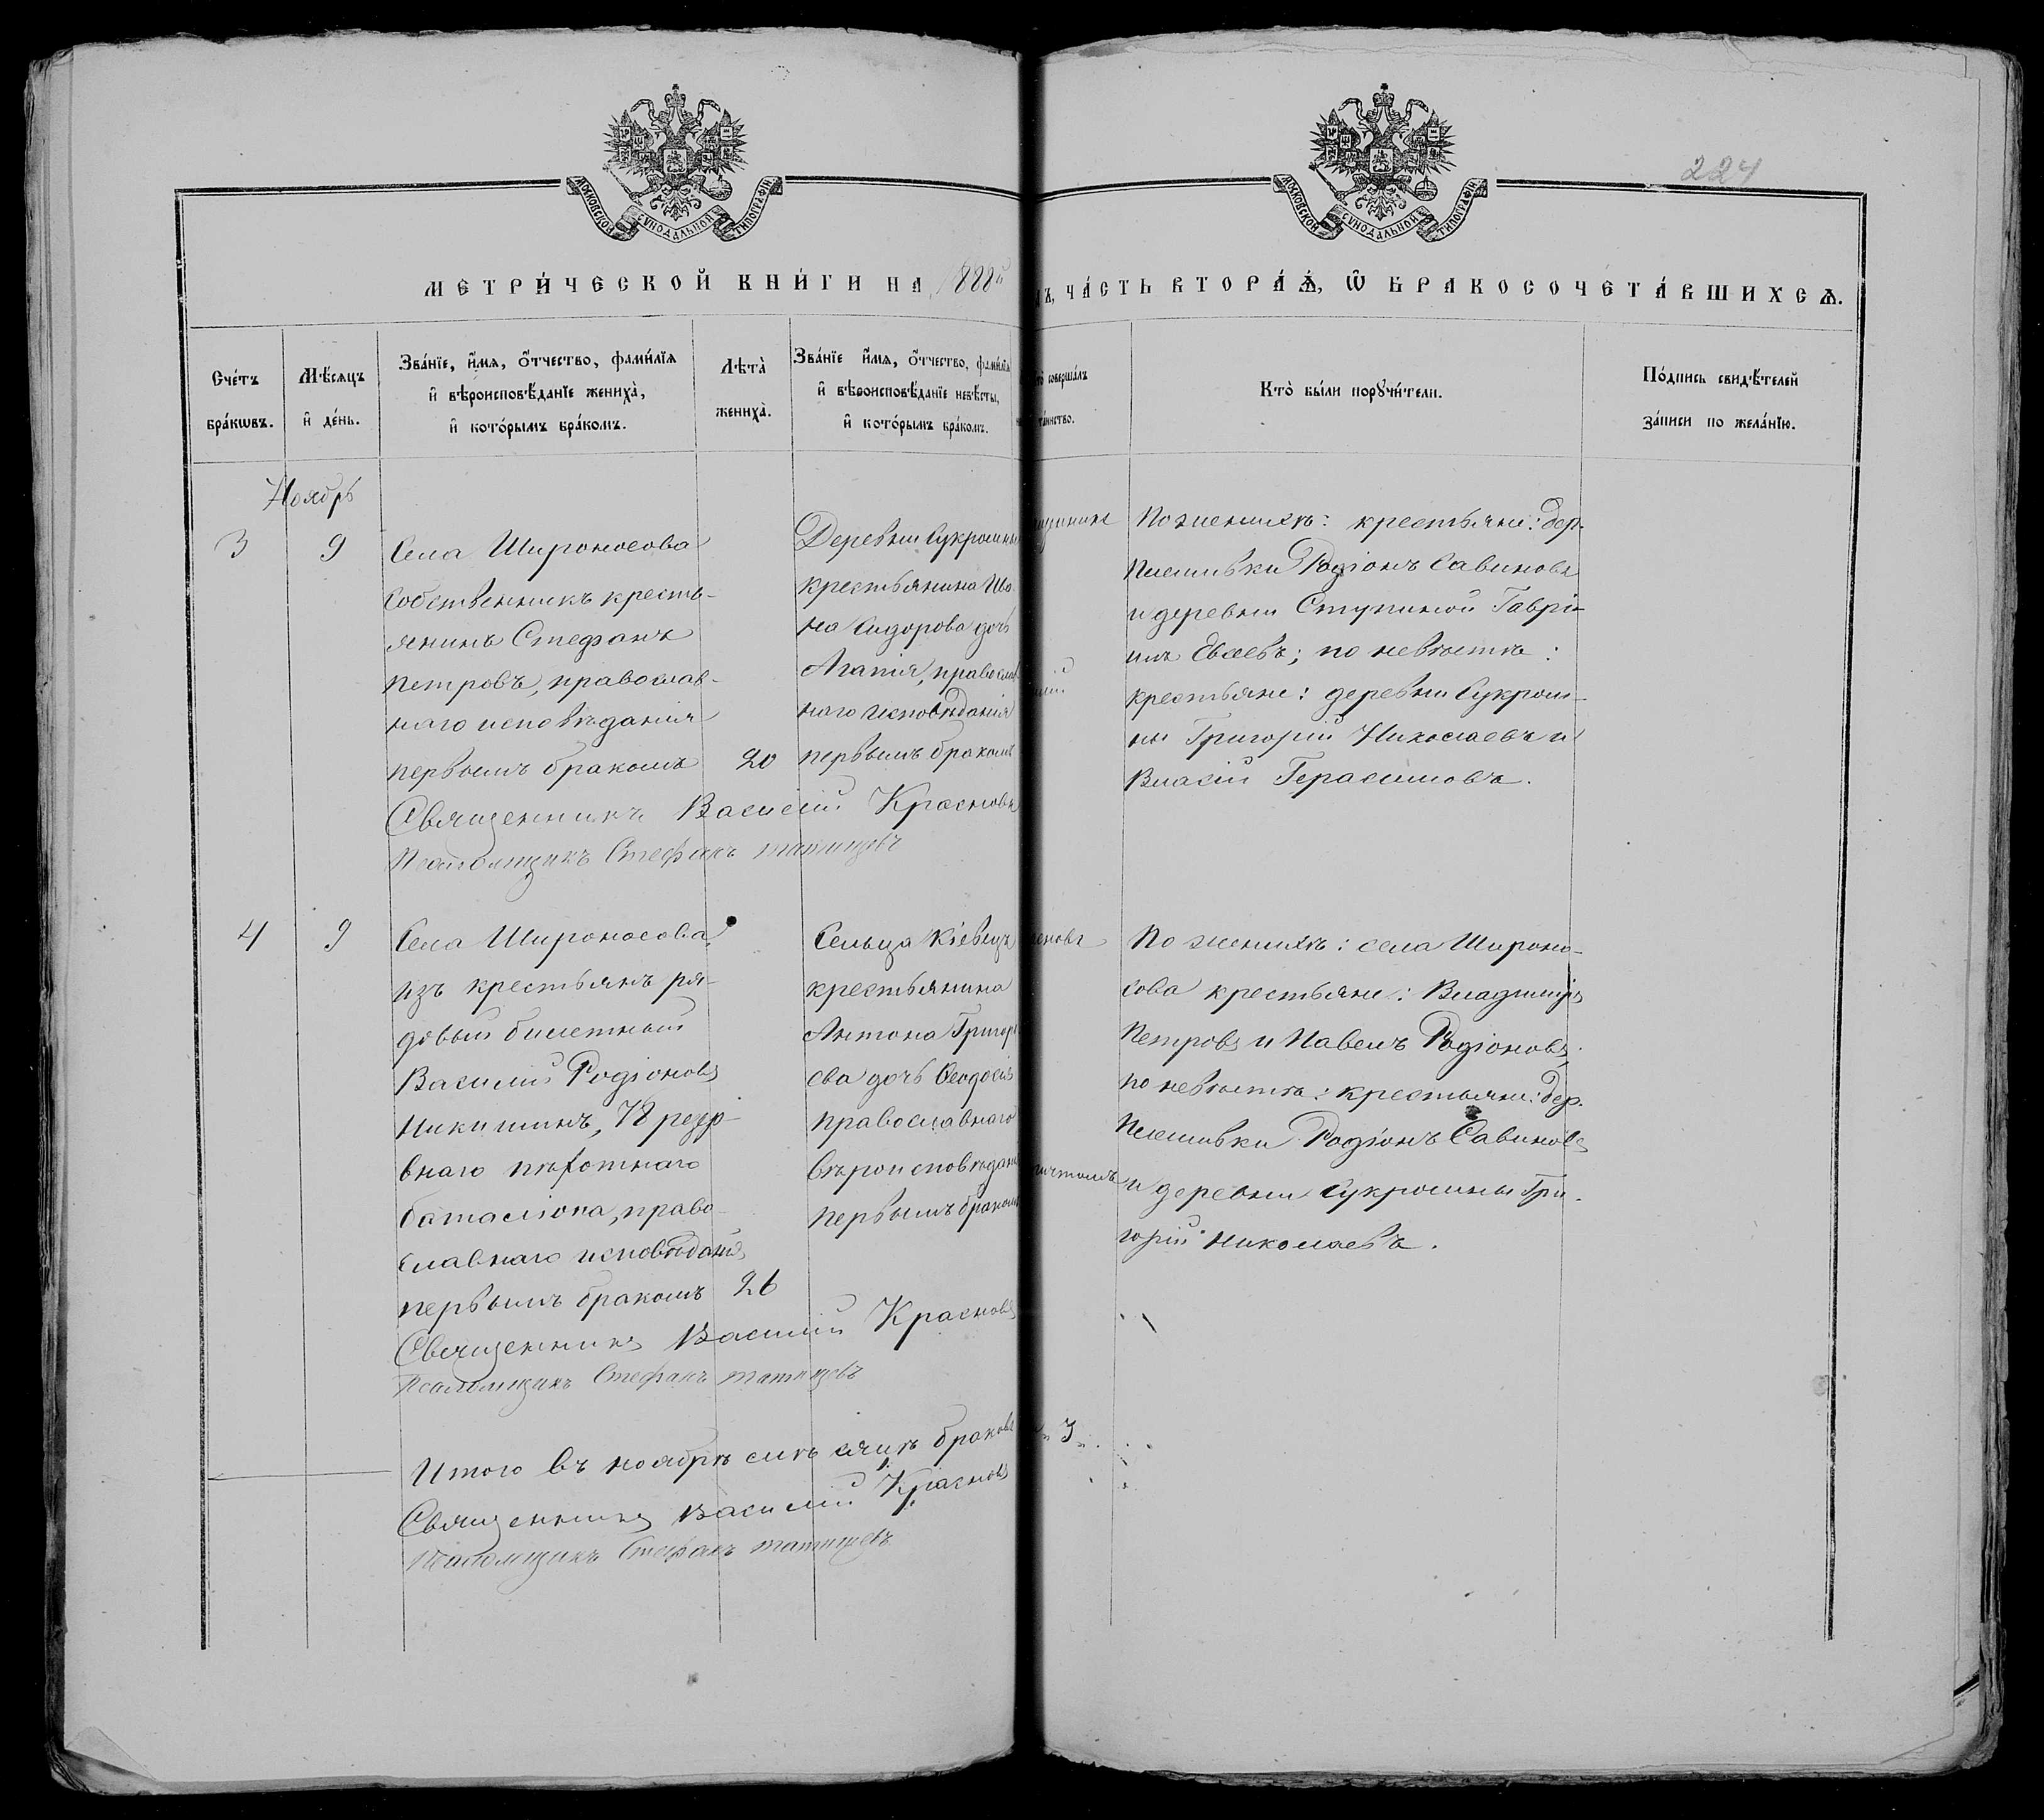 224
МОСКОВСКОЙ СѴНОДАЛЬНОЙ ТИПОГРАФІИ.
МОСКОВСКОЙ СѴНОДАЛЬНОЙ ТИПОГРАФІИ.
МЕТРИ́ЧЕСКОЙ КНИ́ГИ НА 1888й
ЧА́СТЬ ВТОРА́Ѧ, Ѽ БРАКОСОЧЕТА́ВШИХСѦ.
Сче́тъ
бра́кѡвъ.
Мѣ́сѧцъ
и҆ де́нь.
Зва́нїе, и҆́мѧ, ѻ҆́тчество, фами́лїѧ
и҆ вѣроисповѣ́данїе жениха̀,
и҆ кото́рымъ бра́комъ.
Лѣта̀
жениха̀.
Зва́нїе и҆́мѧ, ѻ҆́тчество, фами́лїѧ
и҆ вѣроисповѣ́данїе невѣ́сты,
и҆ кото́рымъ бра́комъ.
соверша́лъ
та́инство.
Кто̀ бы́ли порꙋчи́тели.
По́дпись свидѣ́телей
за́писи по жела́нїю.
Ноябрь
3
9
Села Широносова
собственникъ кресть-
янинъ Стефанъ
Петровъ, православ-
наго исповѣданія
первымъ бракомъ
20
Деревни Сукромны
крестьянина Ива-
на Сидорова дочь
Агапія, православ
наго исповѣданія
первымъ бракомъ
По женихѣ: крестьяне: дер.
Плешивки Родіонъ Савиновъ
и деревни Ступиной Гаврі-
илъ Евсеевъ; по невѣстѣ:
крестьяне: деревни Сукром-
ны Григорій Николаевъ и
Власій Герасимовъ.
Священникъ Василій Красновъ
Псаломщикъ Стефанъ Татищевъ
4
9
Села Широносова
изъ крестьянъ ря-
довый билетный
Василій Родіоновъ
Никишинъ, 78 резер-
внаго пѣхотнаго
баталіона, право-
славнаго исповѣданія
первымъ бракомъ
26
Сельца Кіевицъ
крестьянина
Антона Григорь
ева дочь Ѳеодосія
православнаго
вѣроисповѣдан
первымъ бракомъ
По женихѣ: села Широно-
сова крестьяне: Владиміръ
Петровъ и Павелъ Родіоновъ,
по невѣстѣ: крестьяне: дер.
Плешивки Родіонъ Савиновъ
и деревни Сукромны Гри-
горій Николаевъ.
Священникъ Василій Красновъ
Псаломщикъ Стефанъ Татищевъ
Итого въ ноябрѣ мѣсяцѣ браковъ
3
Священникъ Василій Красновъ
Псаломщикъ Стефанъ Татищевъ